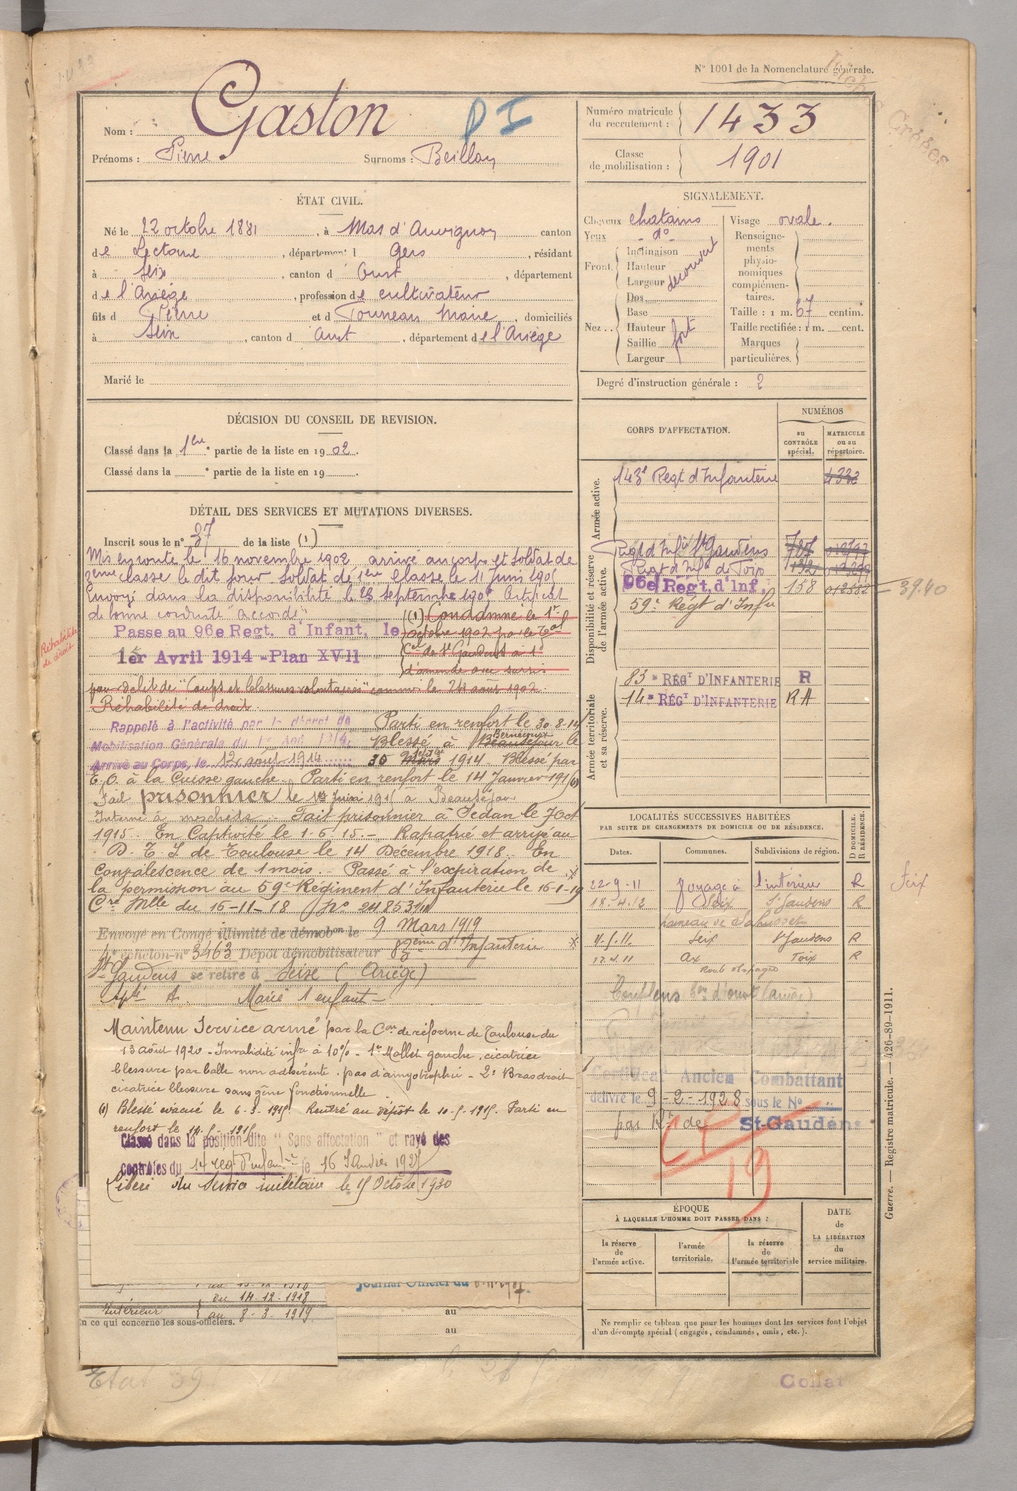 N° 1001 de la Nomenclature générale.
Nom : Gaston
P I
Prénoms : Pierre Surnoms : Beillon
Numéro matricule du recrutement : 1433
Classe de mobilisation : 1901
ÉTAT CIVIL.
Né le 22 octobre 1881, à Mas d'Auvignon canton
de Lectoure, département d Gers, résidant
à Seix, canton d Oust, département
de l'Ariège, profession de cultivateur
fils d Pierre et d Tourneau Marie, domiciliés
à Seix, canton d Oust, département de l'Ariège
Marié le
SIGNALEMENT.
Cheveux chatains Visage ovale.
Yeux do Renseigne-
ments
physio-
nomiques
complémen-
taires.
Front Inclinaison
Hauteur
Largeur
découvert
Nez Dos
Base
Hauteur
Saillie
Largeur
fort
Taille : 1 m. 67 centim.
Taille rectifiée : 1 m. cent.
Marques
particulières.
Degré d'instruction générale : 2
DÉCISION DU CONSEIL DE REVISION.
Classé dans la 1ere partie de la liste en 1902.
Classé dans la e partie de la liste en 19
DÉTAIL DES SERVICES ET MUTATIONS DIVERSES.
Inscrit sous le n° 37 de la liste (1)
Mis en route le 16 novembre 1902 arrivé au corps et Soldat de
2eme classe le dit jour. Soldat de 1ere classe le 11 juin 190
Envoyé dans la disponibilité le 23 septembre 190 Certificat
de bonne conduite "accordé"
Passe au 96e Regt. d'Infant. le
1er Avril 1914 - Plan XVII
(1) Condamné le 1er
octobre 1902 par le Tal
Cel de St Gaudens à 1e
d'amende avec sursis
pour délit de "Coups et blessures volontaires" commis le 24 août 1902.
Réhabilité de droit.
Réhabilité de droit
Rappelé à l'activité par le décret de
Mobilisation Générale du 1er Août 1914.
Arrivé au Corps, le 12 août 1914
Parti en renfort le 30-8-14
Blessé à Beausejour le
30 1914. Blessé par
E. O. à la Cuisse gauche. Parti en renfort le 14 Janvier 191
Fait prisonnier le Juin 191 à Beauséjour
Interné à meschede. Fait prisonnier à Sedan le 7 oct
1915. En Captivité le 1-6-15. Rapatrié et arrivé au
D. T. I. de Toulouse le 14 Décembre 1918. En
Convalescence de 1 mois. Passé à l'expiration de
la permission au 59e Régiment d'Infanterie le 16-1-19
Cre Mlle du 15-11-18 No 24853
Envoyé en Congé illimité de démobon le 9 Mars 1919
4e échelon n° 3463 Dépôt démobilisateur d'Infanterie
St Gaudens se retire à Seixe (Ariège)
Marié 1 enfant
Maintenu Service armé par la Con de réforme de Toulouse du
13 août 1920 - Invalidité infre à 10% - 1° Mollet gauche, cicatrice
blessure par balle non adhérente. pas d'amyotrophie - 2° Bras droit
cicatrice blessure sans gène fonctionnelle
(1) Blessé évacué le 6-3-1915 Rentré au dépôt le 10-5-1915. Parti en
renfort le 14-5-1915
Classé dans la position dite "Sans affectation" et rayé des
contrôles du 14e regt d'infantie le 16 Janvier 1927
Libéré du service militaire le 15 Octobre 1930
14-12-1918
Intérieur au 8-3-1919
n ce qui concerne les sous-officiers.
Journal Officiel du
au
au
CORPS D'AFFECTATION.
NUMÉROS
au CONTRÔLE spécial.
MATRICULE ou au répertoire.
Armée active.
143e Regt d'Infanterie 4332
Disponibilité et réserve de l'armée active.
Regt d'Infie St Gaudens
Regt d'Infie de Foix
96e Regt. d'Inf. 158 012352 3940
59e Regt d'Infie
Armée territoriale et sa réserve.
83e RÉGT D'INFANTERIE R
14e RÉGT D'INFANTERIE RA
LOCALITÉS SUCCESSIVES HABITÉES
PAR SUITE DE CHANGEMENTS DE DOMICILE OU DE RÉSIDENCE.
Dates. Communes. Subdivisions de région. D DOMICILE. R RÉSIDENCE.
22-9-11 Voyage à l'intérieur R Seix
18-4-12 Seix St Gaudens R
hameau de
Seix St Gaudens R
Ax Foix R
Couflens con d'oust (ariège)
Certificat Ancien Combattant
délivré le 9-2-1928 sous le No
par Rt de St-Gaudens
CF
19
ÉPOQUE
À LAQUELLE L'HOMME DOIT PASSER DANS :
la réserve de l'armée active.
l'armée territoriale.
la réserve de l'armée territoriale.
DATE de LA LIBÉRATION du service militaire.
Ne remplir ce tableau que pour les hommes dont les services font l'objet
d'un décompte spécial (engagés, condamnés, omis, etc.).
Guerre. — Registre matricule. — 426-89-1911.
Etat 39